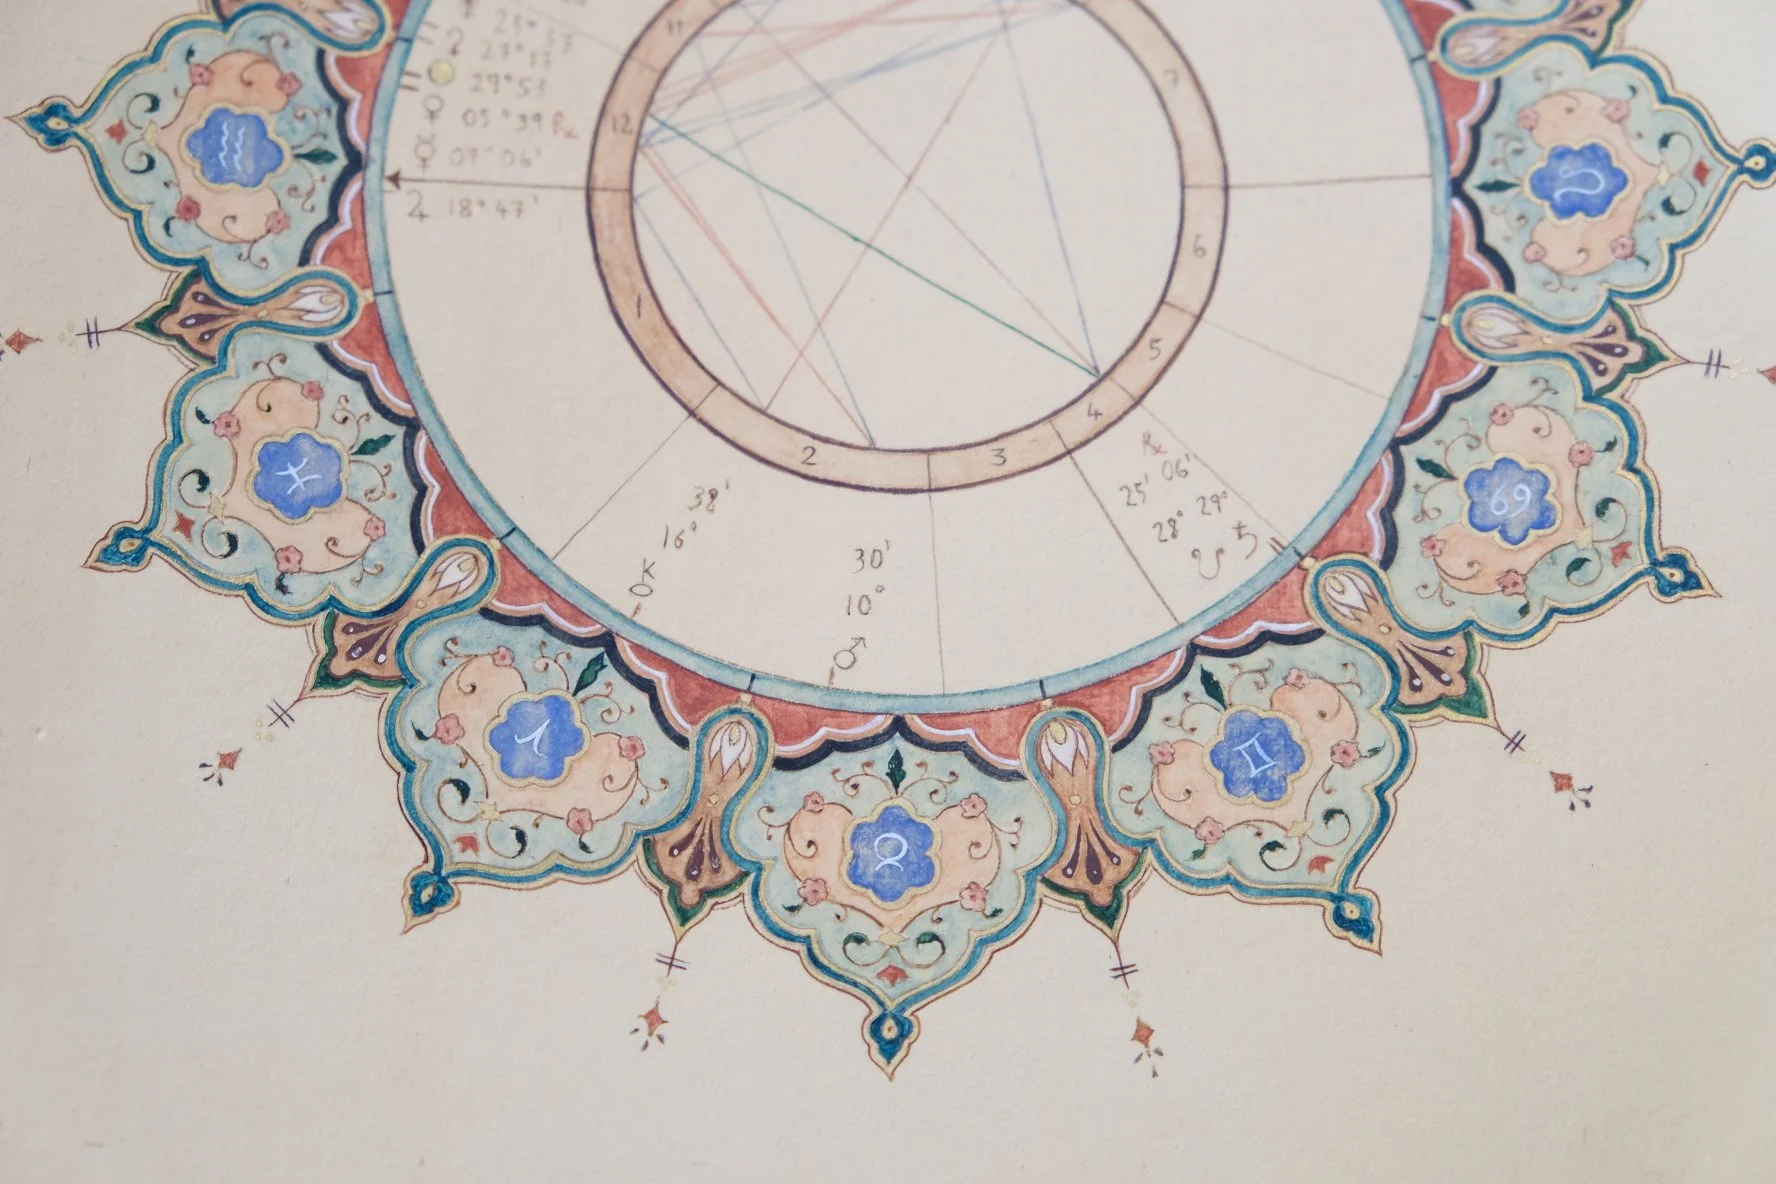 23° 37'
27° 17'
29° 53'
♀ 05° 39' ℞
☿ 07° 06'
♃ 18° 47'
11
12
1
2
3
4
5
6
7
38'
16°
⚷
30'
10°
♂
℞
25' 06'
28° 29°
☋ ♄
♒
♓
♈
♉
♊
♋
♌